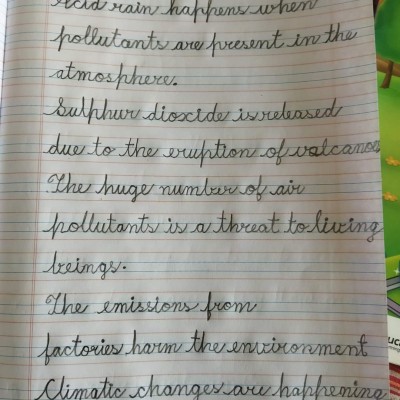 Acid rain happens when
pollutants are present in the
atmosphere.
Sulphur dioxide is released
due to the eruption of volcanoes
The huge number of air
pollutants is a threat to living
beings.
The emissions from
factories harm the environment
Climatic changes are happening